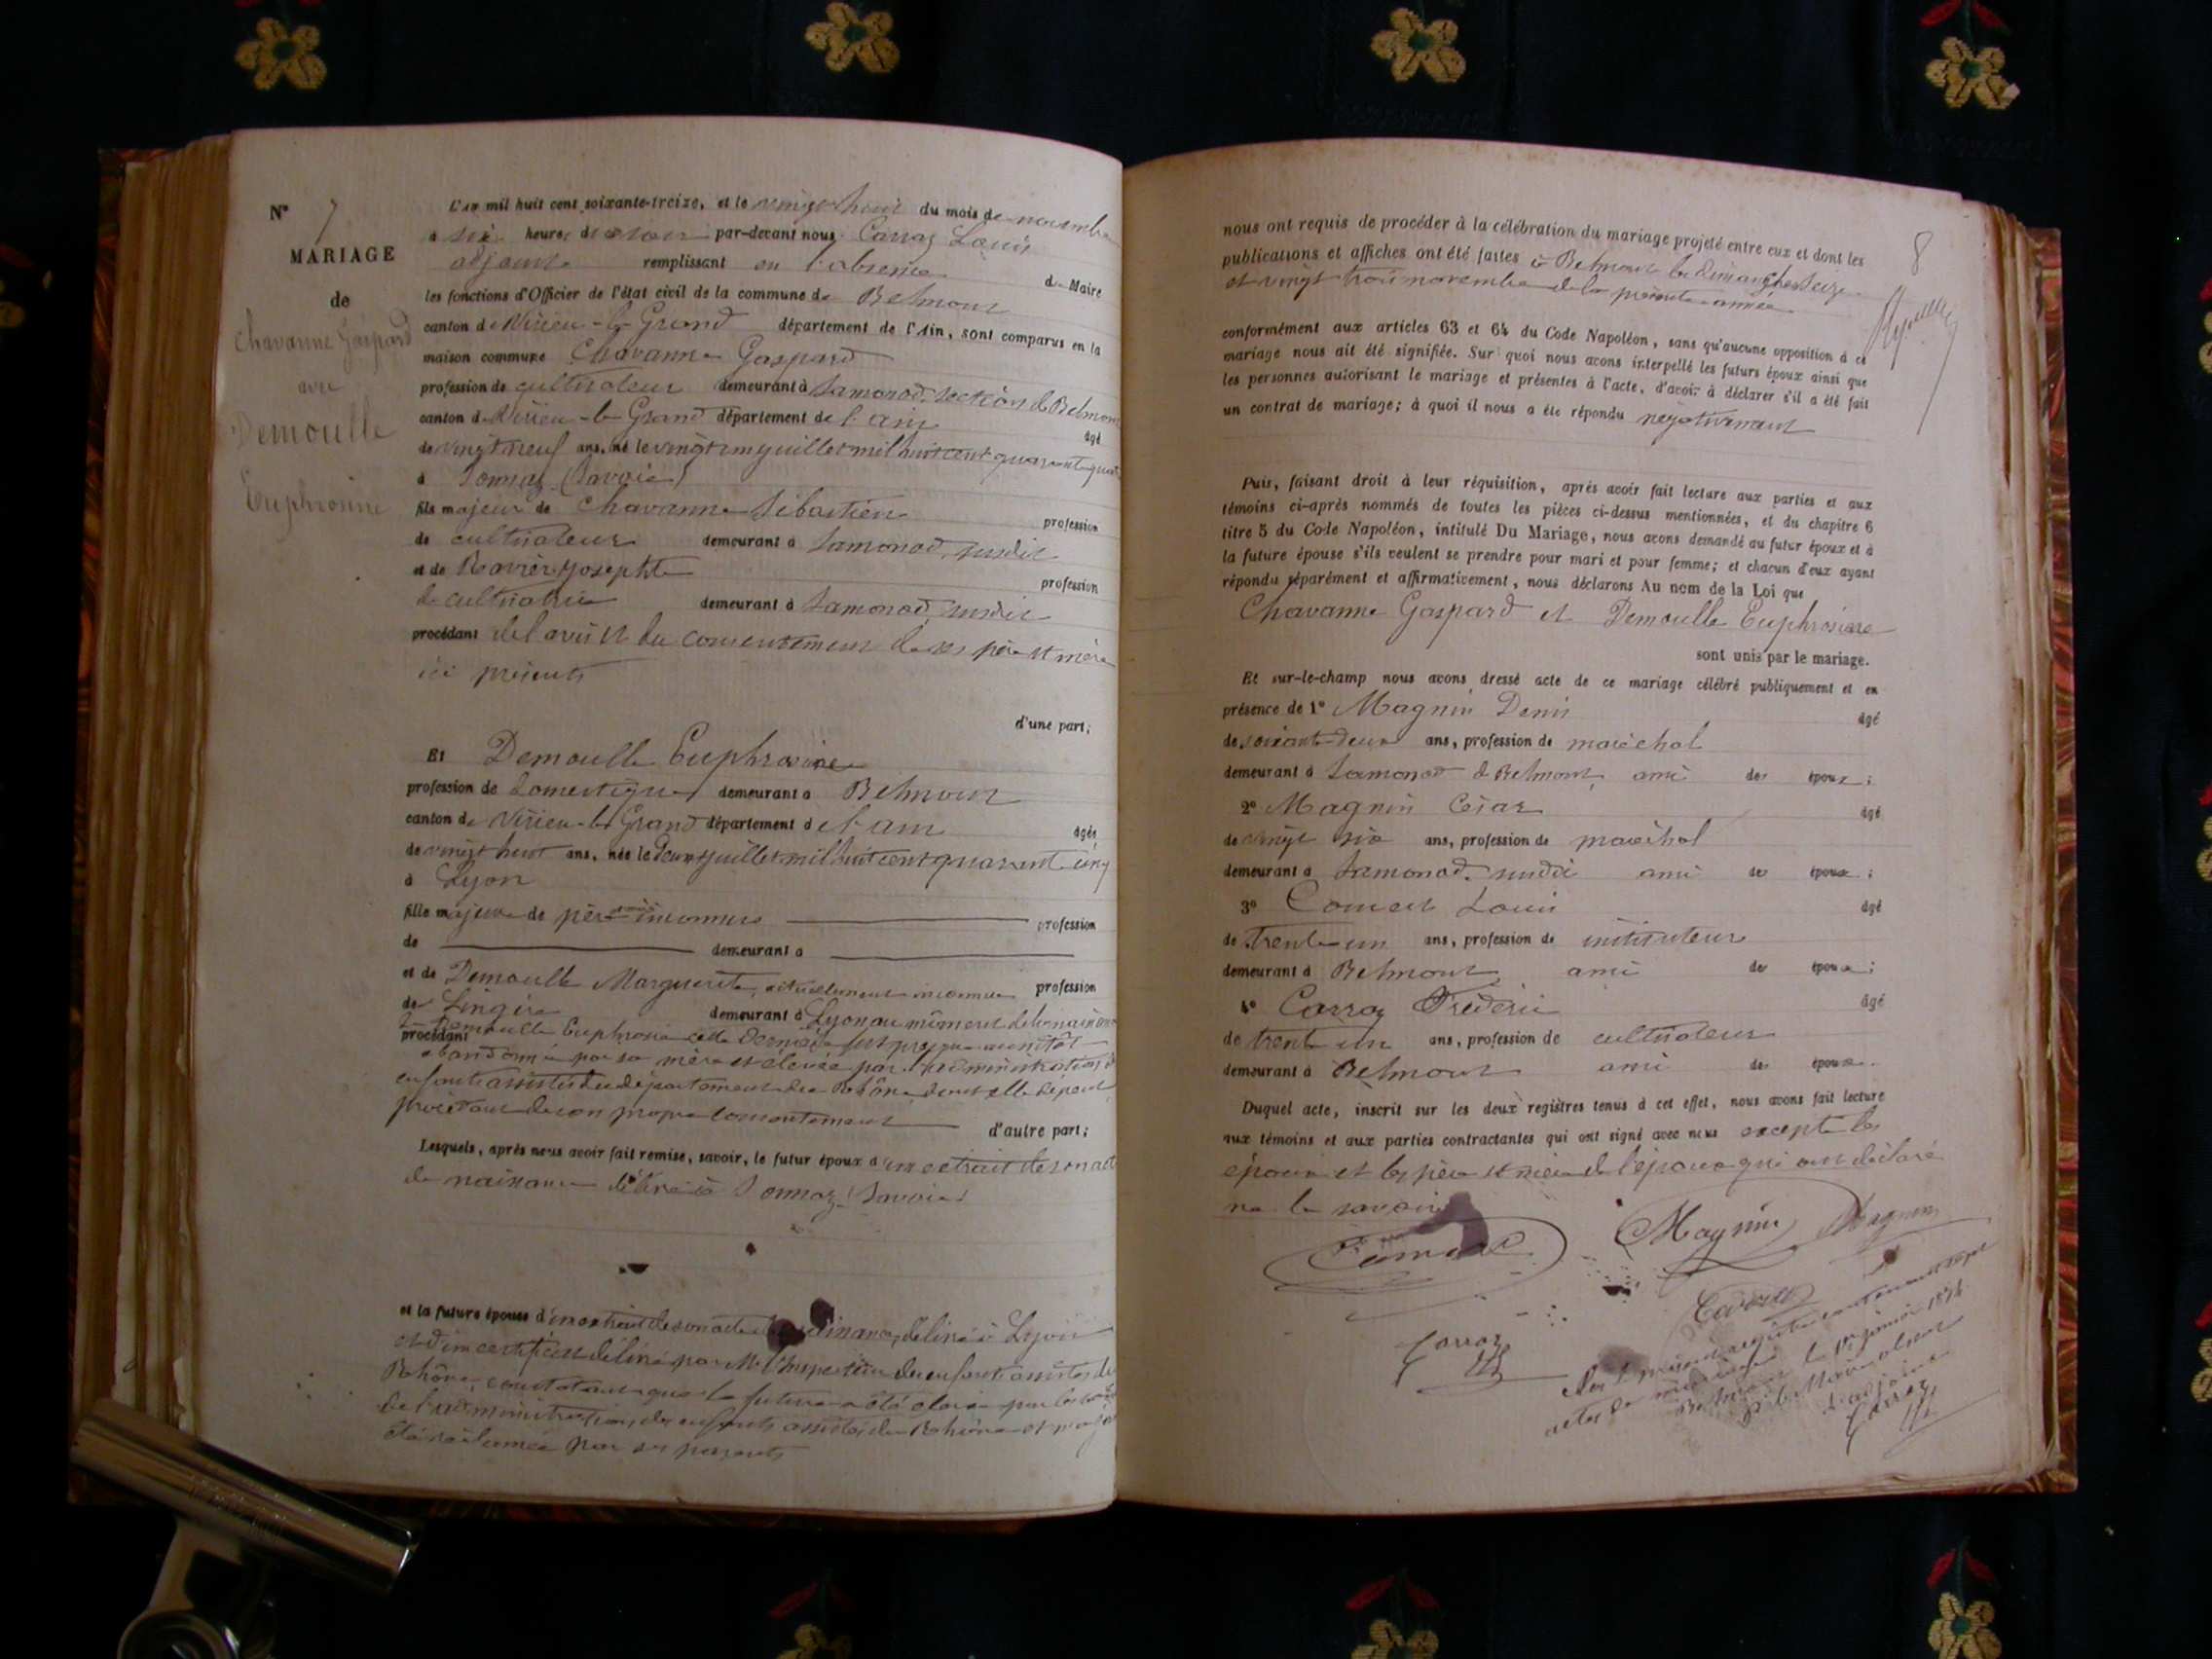 N° 7
MARIAGE
de
Chavanne Gaspard
avec
Demoulle
Euphrosine
L'an mil huit cent soixante-treize, et le vingt huit du mois de novembre
à six heures du soir par-devant nous Carraz Louis
adjoint remplissant en l'absence du Maire
les fonctions d'Officier de l'état civil de la commune de Belmont
canton de Virieu-le-Grand département de l'Ain, sont comparus en la
maison commune Chavanne Gaspard
profession de cultivateur demeurant à Samonod, section de Belmont
canton de Virieu-le-Grand département de l'ain âgé
de vingt neuf ans, né le vingt juillet mil huit cent quarante quatre
à Sonnaz (Savoie)
fils majeur de Chavanne Sébastien profession
de cultivateur demeurant à Samonod, susdit
et de Ravier Josephte profession
de cultivatrice demeurant à Samonod, susdit
procédant de l'avis et du consentement de ses père et mère
ici présents
d'une part;
Et Demoulle Euphrosine
profession de domestique demeurant à Belmont
canton de Virieu-le-Grand département de l'ain âgée
de vingt huit ans, née le deux juillet mil huit cent quarante cinq
à Lyon
fille majeure de père inconnu profession
de demeurant à
et de Demoulle Marguerite, actuellement inconnue profession
de Lingère demeurant à Lyon au moment de la naissance
de Demoulle Euphrosine cette dernière fut presque aussitôt
procédant
abandonnée par sa mère et élevée par l'administration des
enfants assistés du département du Rhône dont elle dépend
procédant de son propre consentement d'autre part;
Lesquels, après nous avoir fait remise, savoir, le futur époux d'un extrait de son acte
de naissance délivré à Sonnaz (Savoie)
et la future épouse d'un extrait de son acte de naissance, délivré à Lyon
et d'un certificat délivré par Mr l'Inspecteur des enfants assistés du
Rhône, constatant que la future a été élevée par les soins
de l'administration des enfants assistés du Rhône et n'a pas
été réclamée par ses parents
8
nous ont requis de procéder à la célébration du mariage projeté entre eux et dont les
publications et affiches ont été faites à Belmont les dimanches seize
et vingt trois novembre de la présente année
conformément aux articles 63 et 64 du Code Napoléon, sans qu'aucune opposition à ce
mariage nous ait été signifiée. Sur quoi nous avons interpellé les futurs époux ainsi que
les personnes autorisant le mariage et présentes à l'acte, d'avoir à déclarer s'il a été fait
un contrat de mariage; à quoi il nous a été répondu négativement
Puis, faisant droit à leur réquisition, après avoir fait lecture aux parties et aux
témoins ci-après nommés de toutes les pièces ci-dessus mentionnées, et du chapitre 6
titre 5 du Code Napoléon, intitulé Du Mariage, nous avons demandé au futur époux et à
la future épouse s'ils veulent se prendre pour mari et pour femme; et chacun d'eux ayant
répondu séparément et affirmativement, nous déclarons Au nom de la Loi que
Chavanne Gaspard et Demoulle Euphrosine
sont unis par le mariage.
Et sur-le-champ nous avons dressé acte de ce mariage célébré publiquement et en
présence de 1° Magnin Denis âgé
de soixante-deux ans, profession de maréchal
demeurant à Samonod de Belmont, ami des époux;
2° Magnin César âgé
de vingt six ans, profession de maréchal
demeurant à Samonod, susdit ami des époux;
3° Louis âgé
de trente un ans, profession de instituteur
demeurant à Belmont ami des époux;
4° Carraz Frédéric âgé
de trente un ans, profession de cultivateur
demeurant à Belmont ami des époux.
Duquel acte, inscrit sur les deux registres tenus à cet effet, nous avons fait lecture
aux témoins et aux parties contractantes qui ont signé avec nous excepté les
époux et les père et mère de l'époux qui ont déclaré
ne le savoir
Magnin Magnin
Carraz
Carraz
actes de mariage
Belmont le 1er janvier 1874
p. le Maire absent
L'adjoint
Carraz